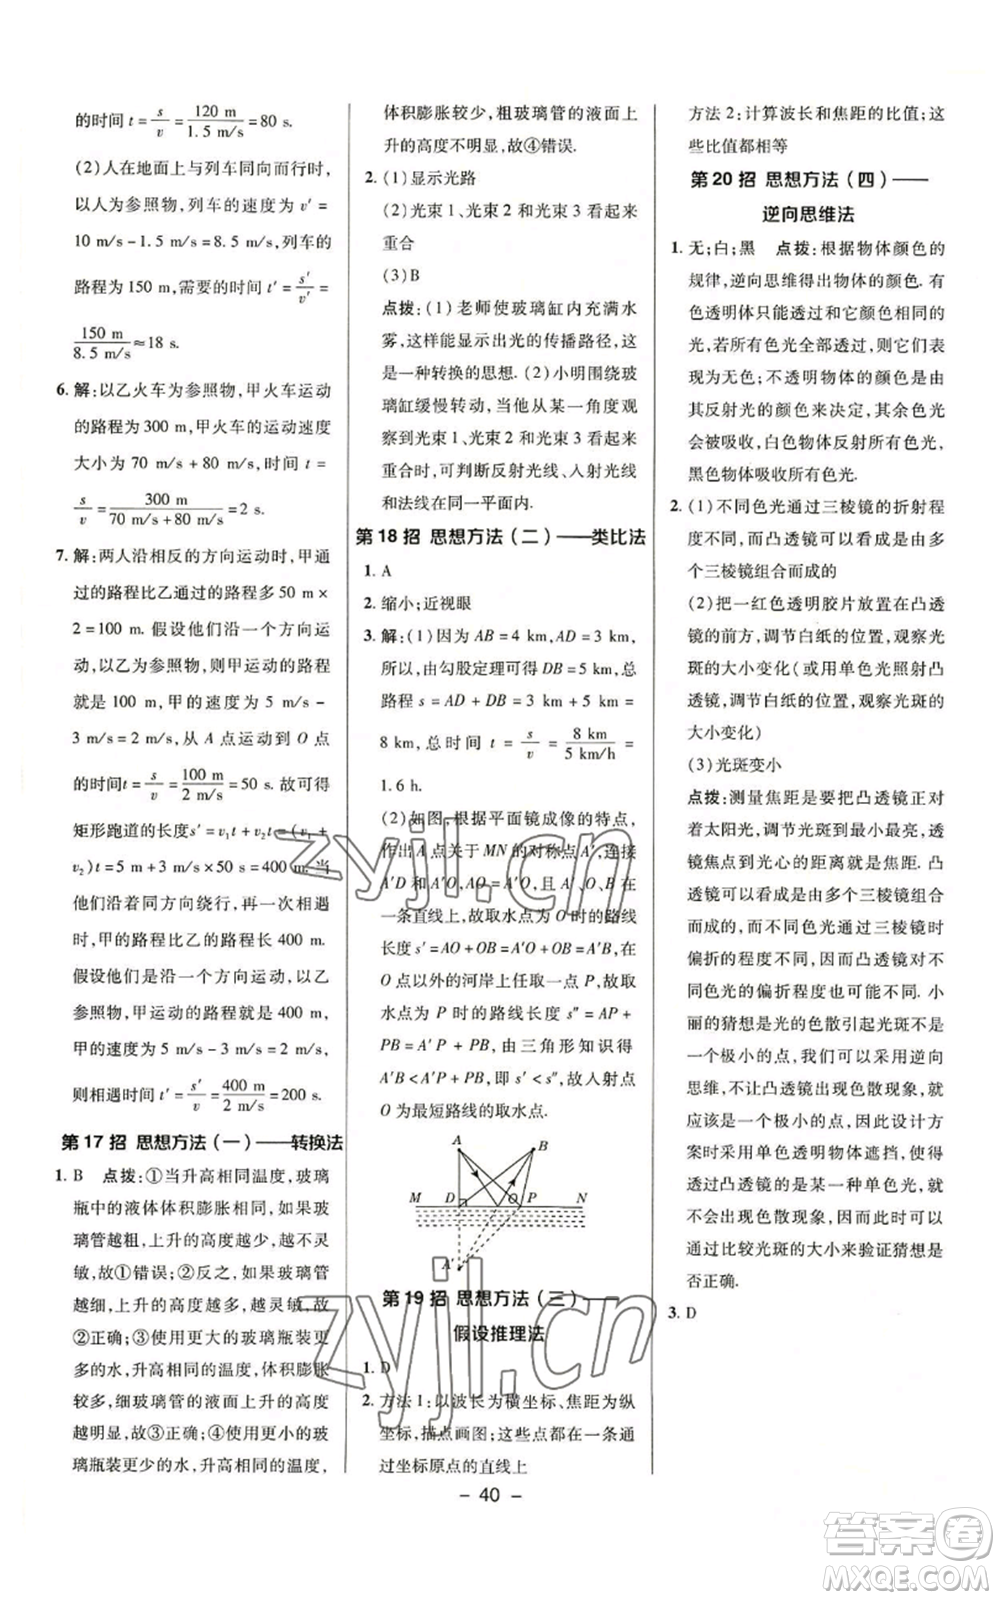 的时间 t = s/v = 120 m/1.5 m/s = 80 s.
(2)人在地面上与列车同向而行时,
以人为参照物,列车的速度为 v′ =
10 m/s－1.5 m/s＝8.5 m/s,列车的
路程为 150 m,需要的时间 t′ = s′/v′ =
150 m/8.5 m/s ≈18 s.
6. 解:以乙火车为参照物,甲火车运动
的路程为 300 m,甲火车的运动速度
大小为 70 m/s + 80 m/s,时间 t =
s/v = 300 m/70 m/s+80 m/s = 2 s.
7. 解:两人沿相反的方向运动时,甲通
过的路程比乙通过的路程多 50 m ×
2 = 100 m. 假设他们沿一个方向运
动,以乙为参照物,则甲运动的路程
就是 100 m,甲的速度为 5 m/s －
3 m/s＝2 m/s,从 A 点运动到 O 点
的时间 t = s/v = 100 m/2 m/s = 50 s. 故可得
矩形跑道的长度 s′ = v₁t + v₂t = (v₁ +
v₂)t = 5 m/s + 3 m/s × 50 s = 400 m. 当
他们沿着同方向绕行,第一次相遇
时,甲的路程比乙的路程长 400 m.
假设他们沿一个方向运动,以乙为
参照物,甲运动的路程就是 400 m,
甲的速度为 5 m/s－3 m/s＝2 m/s,
则相遇时间 t′ = s′/v = 400 m/2 m/s = 200 s.
第 17 招 思想方法(一)——转换法
1. B 点拨:①当升高相同温度,玻璃
瓶中的液体体积膨胀相同,如果玻
璃管越粗,上升的高度越小,越不灵
敏,故①错误;②反之,如果玻璃管
越细,上升的高度越多,越灵敏,故
②正确;③使用更大的玻璃瓶装更
多的水,升高相同的温度,体积膨胀
较多,细玻璃管的液面上升的高度
越明显,故③正确;④使用更小的玻
璃瓶装更少的水,升高相同的温度,
体积膨胀较少,粗玻璃管的液面上
升的高度不明显,故④错误.
2. (1)显示光路
(2)光束 1、光束 2 和光束 3 看起来
重合
(3)B
点拨:(1)老师使玻璃缸内充满水
雾,这样能显示出光的传播路径,这
是一种转换的思想. (2)小明围绕玻
璃缸缓慢转动,当他从某一角度观
察到光束 1、光束 2 和光束 3 看起来
重合时,可判断反射光线、入射光线
和法线在同一平面内.
第 18 招 思想方法(二)——类比法
1. A
2. 缩小;近视眼
3. 解:(1)因为 AB = 4 km,AD = 3 km,
所以,由勾股定理可得 DB = 5 km,总
路程 s = AD + DB = 3 km + 5 km =
8 km,总时间 t = s/v = 8 km/5 km/h =
1.6 h.
(2)如图,根据平面镜成像的特点,
作出 A 点关于 MN 的对称点 A′,连接
A′D 和 A′O,AO = A′O,且 A′、O、B 在
一条直线上,故取水点为 O 时的路线
长度 s′ = AO + OB = A′O + OB = A′B,在
O 点以外的河岸上任取一点 P,故取
水点为 P 时的路线长度 s″ = AP +
PB = A′P + PB,由三角形知识得
A′B < A′P + PB,即 s′ < s″,故入射点
O 为最短路线的取水点.
A B
M D O P N
A′
第 19 招 思想方法(三)——
假设推理法
1. D
2. 方法 1:以波长为横坐标、焦距为纵
坐标,描点画图;这些点都在一条通
过坐标原点的直线上
方法 2:计算波长和焦距的比值;这
些比值都相等
第 20 招 思想方法(四)——
逆向思维法
1. 无;白;黑 点拨:根据物体颜色的
规律,逆向思维得出物体的颜色. 有
色透明体只能透过和它颜色相同的
光,若所有色光全部透过,则它应为
无色;不透明物体的颜色应该是由
其反射光的颜色来决定,其余色光
会被吸收,白色物体反射所有色光,
黑色物体吸收所有色光.
2. (1)不同色光通过三棱镜的折射程
度不同,而凸透镜可以看成是由多
个三棱镜组合而成的
(2)把一红色透明胶片放置在凸透
镜的前方,调节白纸的位置,观察光
斑的大小变化(或用单色光照射凸
透镜,调节白纸的位置,观察光斑的
大小变化)
(3)光斑变小
点拨:测量焦距是要把凸透镜正对
着太阳光,调到光斑到最小最亮,凸
透镜焦点到光心的距离就是焦距. 凸
透镜可以看成是由多个三棱镜组合
而成的,太阳光通过凸透镜时,色光
偏折的程度不同,因此凸透镜对不
同色光的偏折程度也可能不同. 小
丽的猜想是光的色散引起光斑不是
一个极小的点,那么可以利用逆向
思维,不让凸透镜出现色散现象,就
应该是一个极小的点,所以设计方
案采用有色透明物体遮挡,使通过
凸透镜的是某一种单色光,就
不会出现色散现象,这样可以
通过比较光斑的大小来验证猜想是
否正确.
3. D
－ 40 －
zyjl.cn
zyjl.cn
答案圈
MXQE.COM